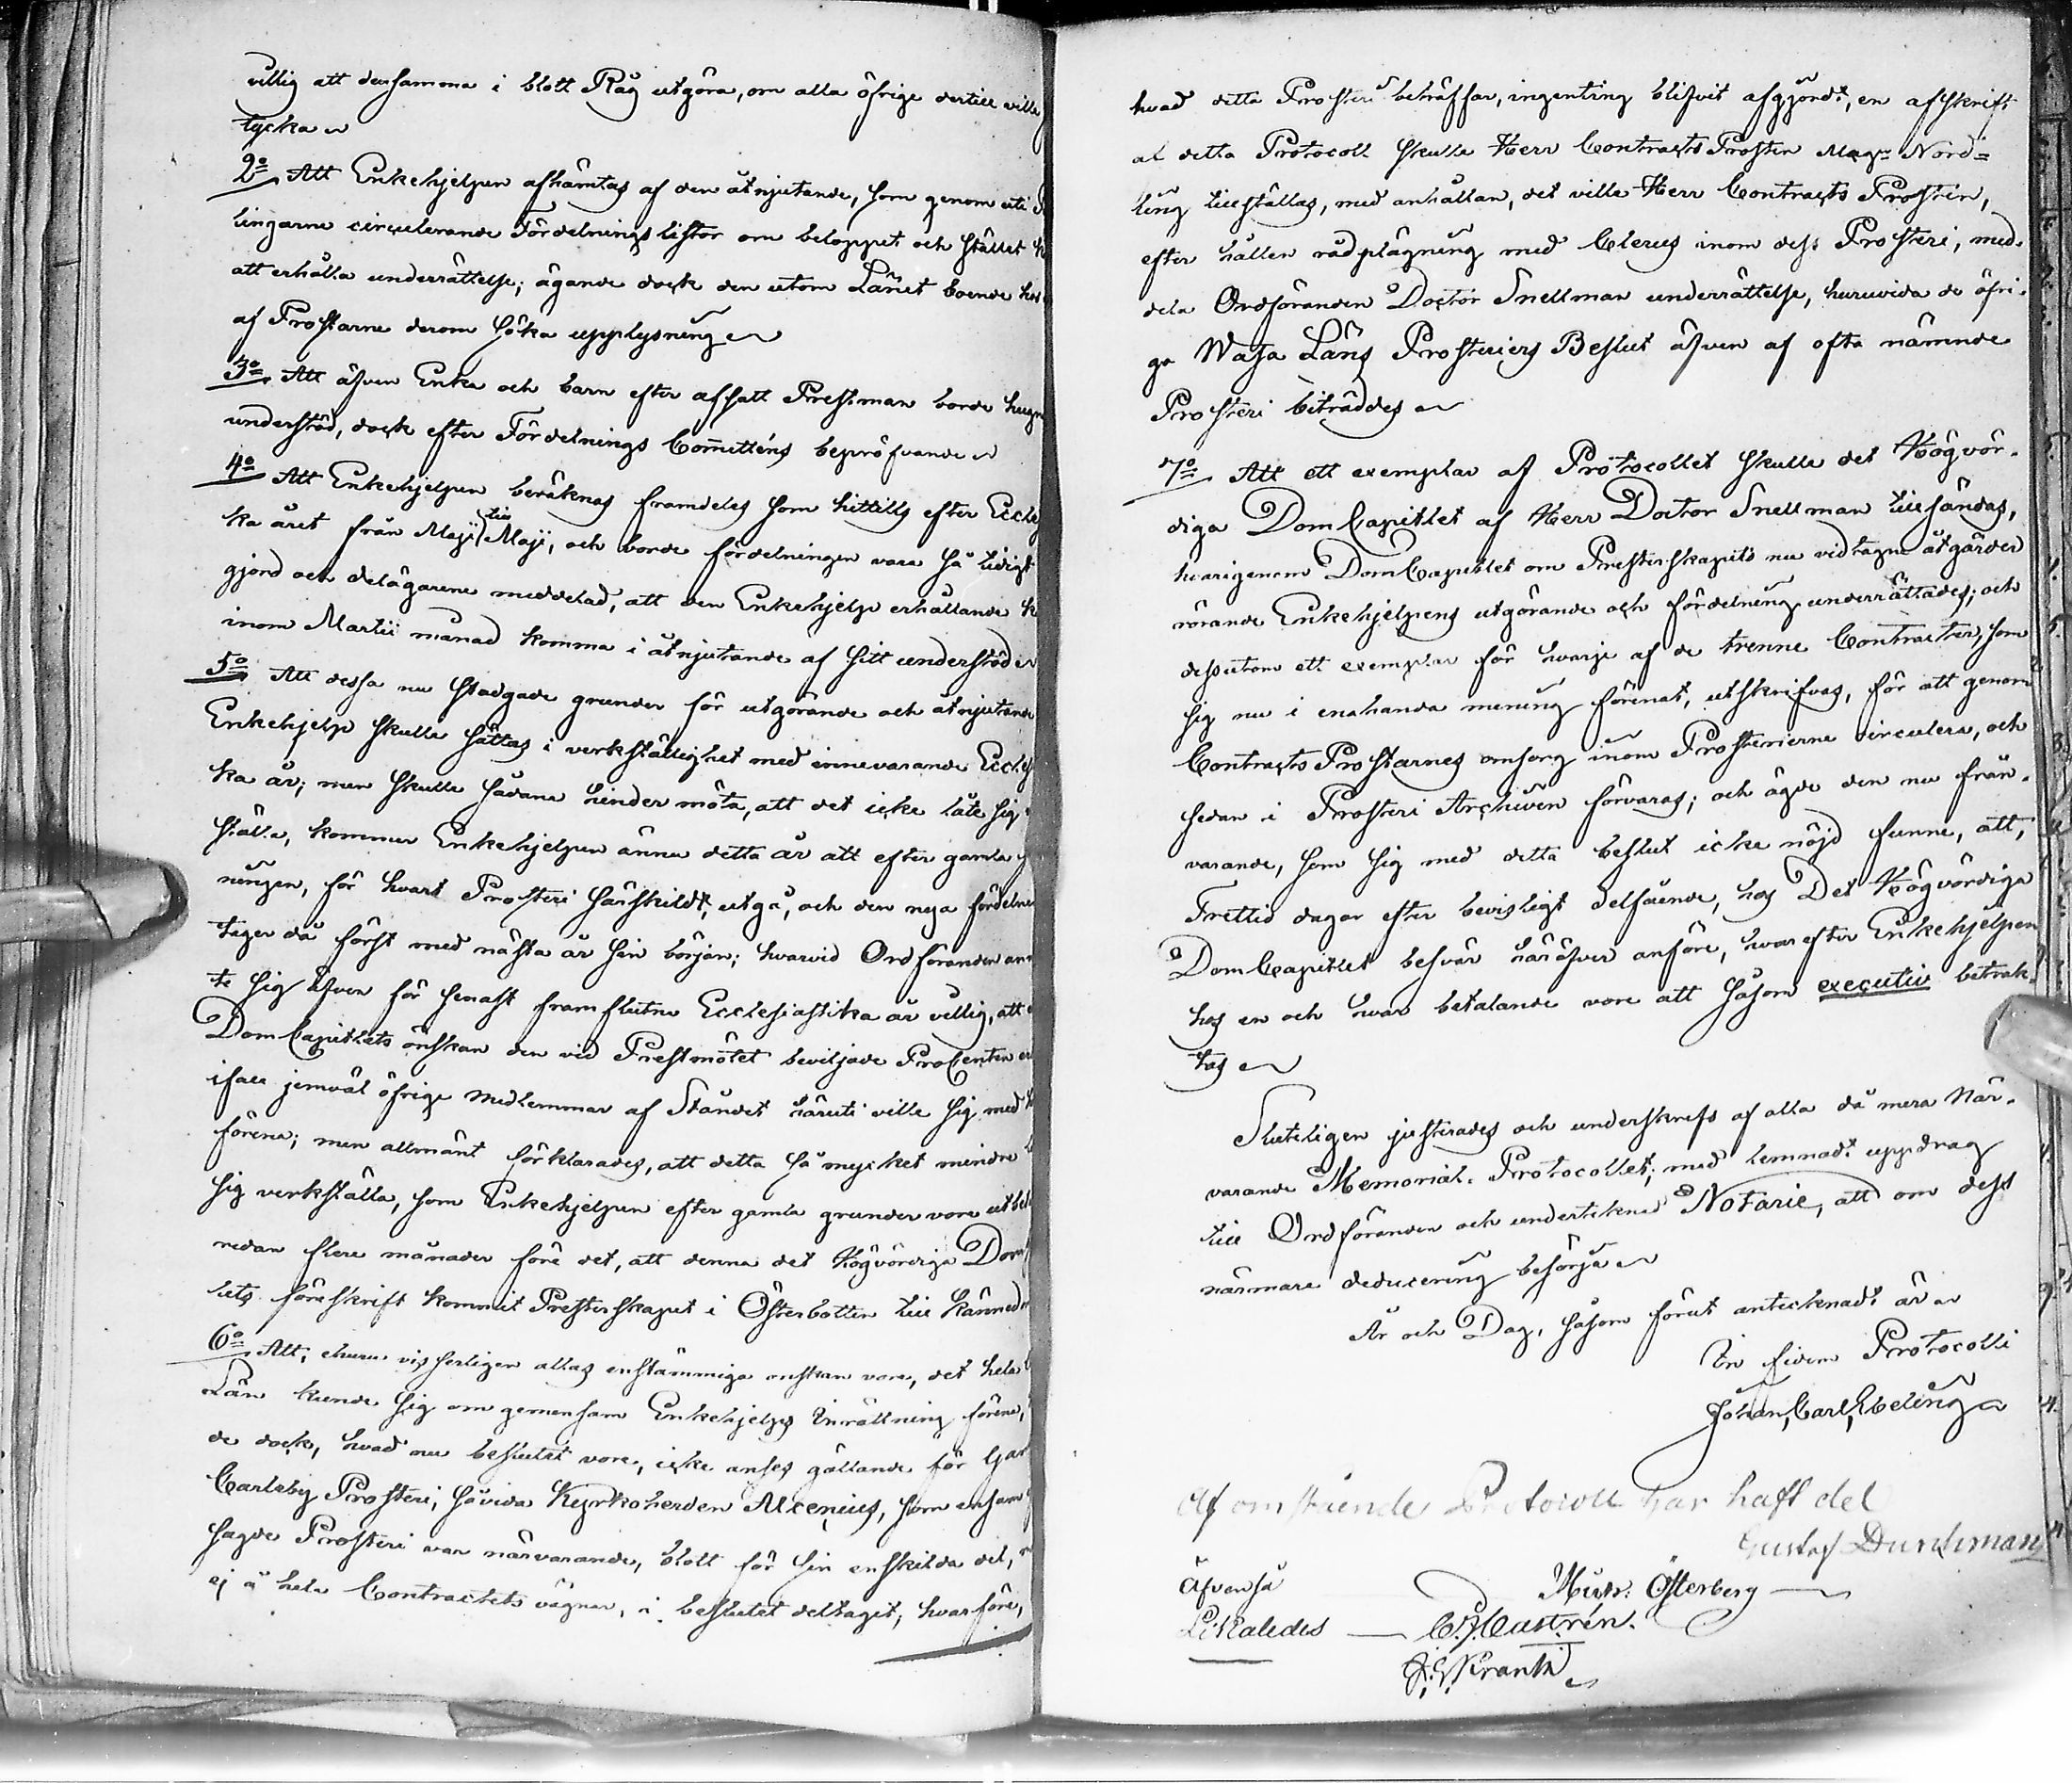 villig att densamma i blott Råg utgöra, om alla öfrige dertill ville
tycka
2o Att Enkehjelpen afhämtas af den åtnjutande, som genom uti
lingarne circulerande Fördelningslistor om beloppet och stället
att erhålla underrättelse; ägande dock den utom Länet boende hos
af Prostarne derom söka upplysning
3o Att äfven Enka och barn efter afsatt Prestman borde hugn
understöd, dock efter Fördelnings Com̅itténs bepröfvande
4o Att Enkehjelpen beräknas framdeles som hittills efter Eccle
ka året från Maji till Maji, och borde fördelningen vara så tidigt
gjord och delägarene meddelad, att den Enkehjelp erhållande k
inom Martii månad komma i åtnjutande af sitt understöd
5o Att dessa nu stadgade grunder för utgörande och åtnjutande
Enkehjelp skulle sättas i verkställighet med innevarande Eccles
ka år; men skulle sådane hinder möta, att det icke låte sig
ställa, kommer Enkehjelpen ännu detta år att efter gamla
ningen, för hvart Prosteri särskildt, utgå, och den nya fördelni
tager då först med nästa år sin början; hvarvid Ordföranden an
te sig äfven för senast framflutne Ecclesiastika år villig, att
DomCapitlets önskan den vid Prestmötet beviljade ProCenten
ifall jemväl öfrige medlemmar af Ståndet häruti ville sig med
förena; men allmänt förklarades, att detta så mycket mindre
sig verkställa, som Enkehjelpen efter gamla grunder vore utbet
redan flere månader före det, att denna det Högvördiga Dom
lets föreskrift kommit Presterskapet i Österbotten till känned
6o Att, ehuru visserligen allas enstämmiga önskan vore, det hela
Län kunde sig om gemensam Enkehjelps Inrättning förena,
de dock, hvad nu beslutet vore, icke anses gällande för Gam
Carleby Prosteri, såvida Kyrkoherden Alcenius, som ensam
sagde Prosteri var närvarande, blott för sin enskilda del,
ej å hela Contractets vägnar, i beslutet deltagit; hvarföre,
hvad detta Prosteri beträffar, ingenting blifvit afgjordt, en afskrift
af detta Protocoll skulle Herr Contracts Prosten Magr Nord=
ling tillställas, med anhållan, det ville Herr Contracts Prosten,
efter hållen rådplägning med Clerus inom dess Prosteri, med-
dela Ordföranden Doctor Snellman underrättelse, huruvida de öfri-
ga Wasa Läns Prosteriers Beslut äfven af ofta nämnde
Prosteri biträddes
7o Att ett exemplar af Protocollet skulle det Högvör-
diga DomCapitlet af Herr Doctor Snellman tillsändas,
hvarigenom DomCapitlet om Presterskapets nu vidtagne åtgärder
rörande Enkehjelpens utgörande och fördelning underrättades; och
dessutom ett exemplar för hvarje af de trenne Contracter, som
sig nu i enahanda mening förenat, utskrifvas, för att genom
Contracts Prostarnes omsorg inom Prosterierne circulera, och
sedan i Prosteri Archiven förvaras; och ägde den nu från-
varande, som sig med detta beslut icke nöjd funne, att,
Trettio dagar efter bevisligt delfående, hos Det Högvördiga
DomCapitlet besvär häröfver anföre, hvarefter Enkehjelpen
hos en och hvar betalande vore att såsom executiv betrak-
tas
Slutligen justerades och underskrefs af alla då mera När-
varande Memorial-Protocollet; med lemnadt uppdrag
till Ordföranden och undertecknad Notarie, att om dess
närmare deducering besörja
År och Dag, såsom förut antecknadt är
In fidem Protocolli
Johan Carl Ebeling
Af omstående Protocoll har haft del
Gustaf Durchman
Äfvenså Österberg
Likaledes C. J. Castrén.